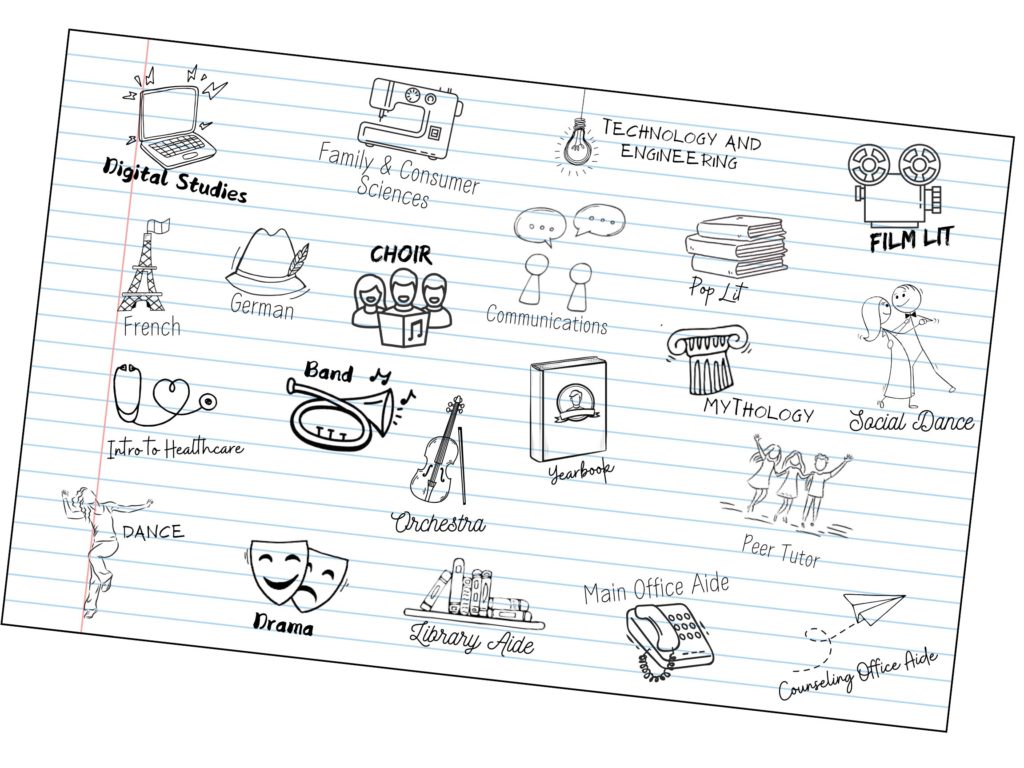 Digital Studies
Family & Consumer
Sciences
TECHNOLOGY AND
ENGINEERING
FILM LIT
French
German
CHOIR
Communications
Pop Lit
Social Dance
Intro to Healthcare
Band
Orchestra
Yearbook
MYTHOLOGY
DANCE
Drama
Library Aide
Main Office Aide
Peer Tutor
Counseling Office Aide